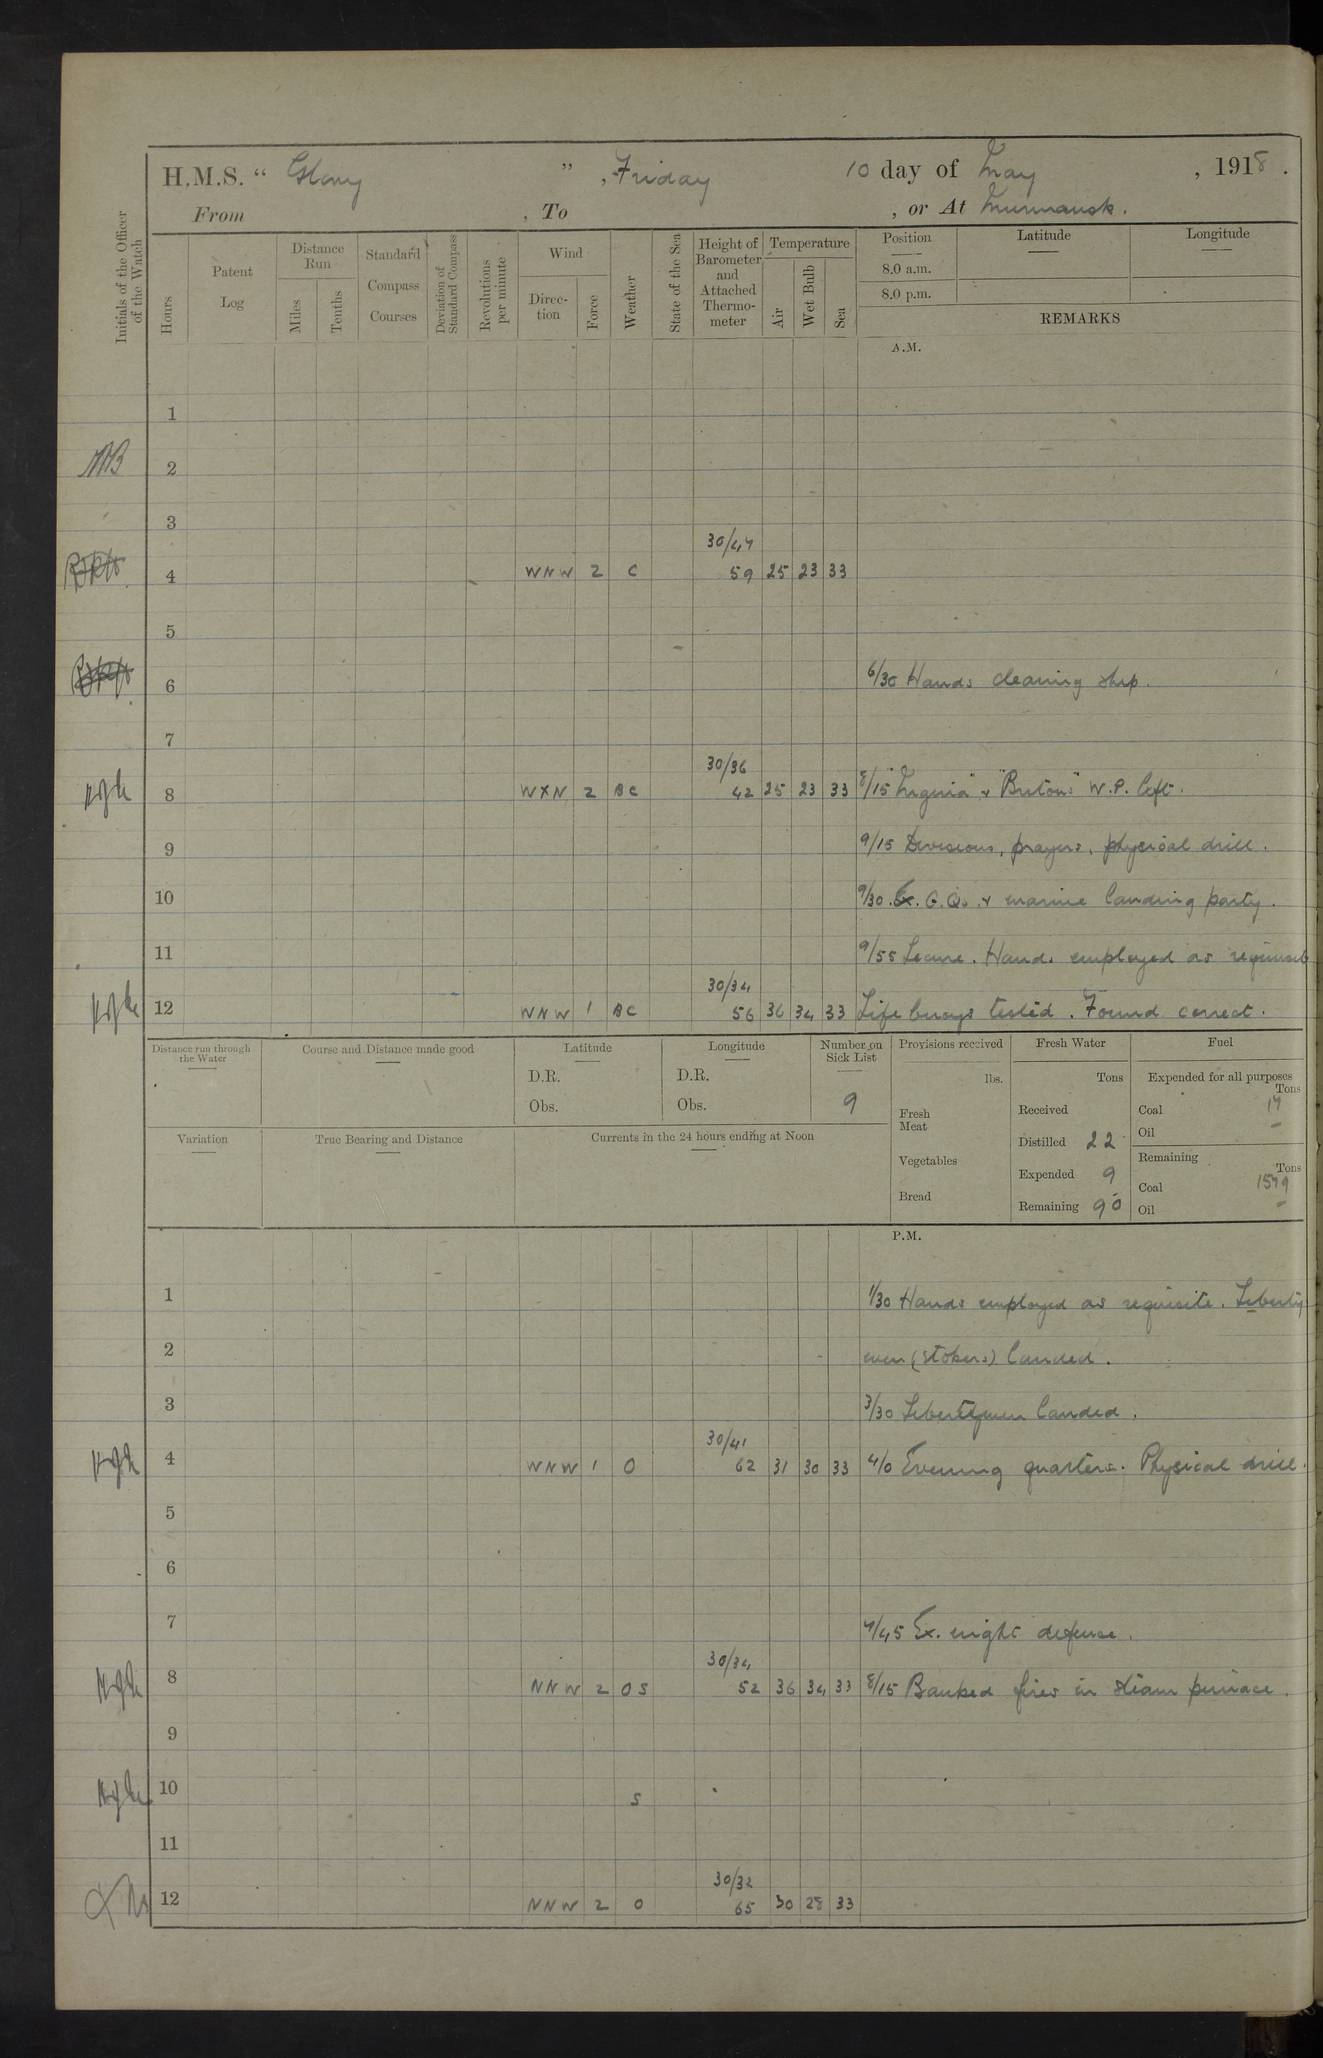 H.M.S. “ Glory ” , Friday 10 day of May , 1918 .
From , To , or At Murmansk .
Initials of the Officer of the Watch
Hours
Patent Log
Distance Run
Miles
Tenths
Standard Compass Courses
Deviation of Standard Compass
Revolutions per minute
Wind
Direc-tion
Force
Weather
State of the Sea
Height of Barometer and Attached Thermo-meter
Temperature
Air
Wet Bulb
Sea
Position
8.0 a.m.
8.0 p.m.
Latitude
Longitude
REMARKS
A.M.
1
2
3
30/47
4 WNW 2 C 59 25 23 33
5
6 6/30 Hands cleaning ship.
7
30/36
8 WXN 2 BC 42 25 23 33 8/15 & "Britons" W.P. left.
9 9/15 Divisions, prayers, physical drill.
10 9/30. Ex. G.Qs. & marine landing party.
11 9/55 Hands employed as requisite
30/34
12 WNW 1 BC 56 36 34 33 Life buoys tested. Found correct.
Distance run through the Water
Course and Distance made good
Latitude
D.R.
Obs.
Longitude
D.R.
Obs.
Number on Sick List
9
Provisions received
lbs.
Fresh Meat
Vegetables
Bread
Fresh Water
Tons
Received
Distilled 22
Expended 9
Remaining 90
Fuel
Expended for all purposes
Tons
Coal 17
Oil –
Remaining
Tons
Coal 1579
Oil –
Variation
True Bearing and Distance
Currents in the 24 hours ending at Noon
P.M.
1 1/30 Hands employed as requisite. Liberty
2 men (stokers) landed.
3 3/30 Libertymen landed.
30/41
4 WNW 1 O 62 31 30 33 4/0 Evening quarters. Physical drill.
5
6
7 7/45 Ex. night defence.
30/34
8 NNW 2 OS 52 36 34 33 8/15 Banked fires in steam pinnace.
9
10 S
11
30/32
12 NNW 2 O 65 30 28 33